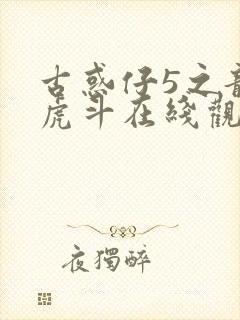 古惑仔5之龍
虎斗在綫觀
夜獨醉